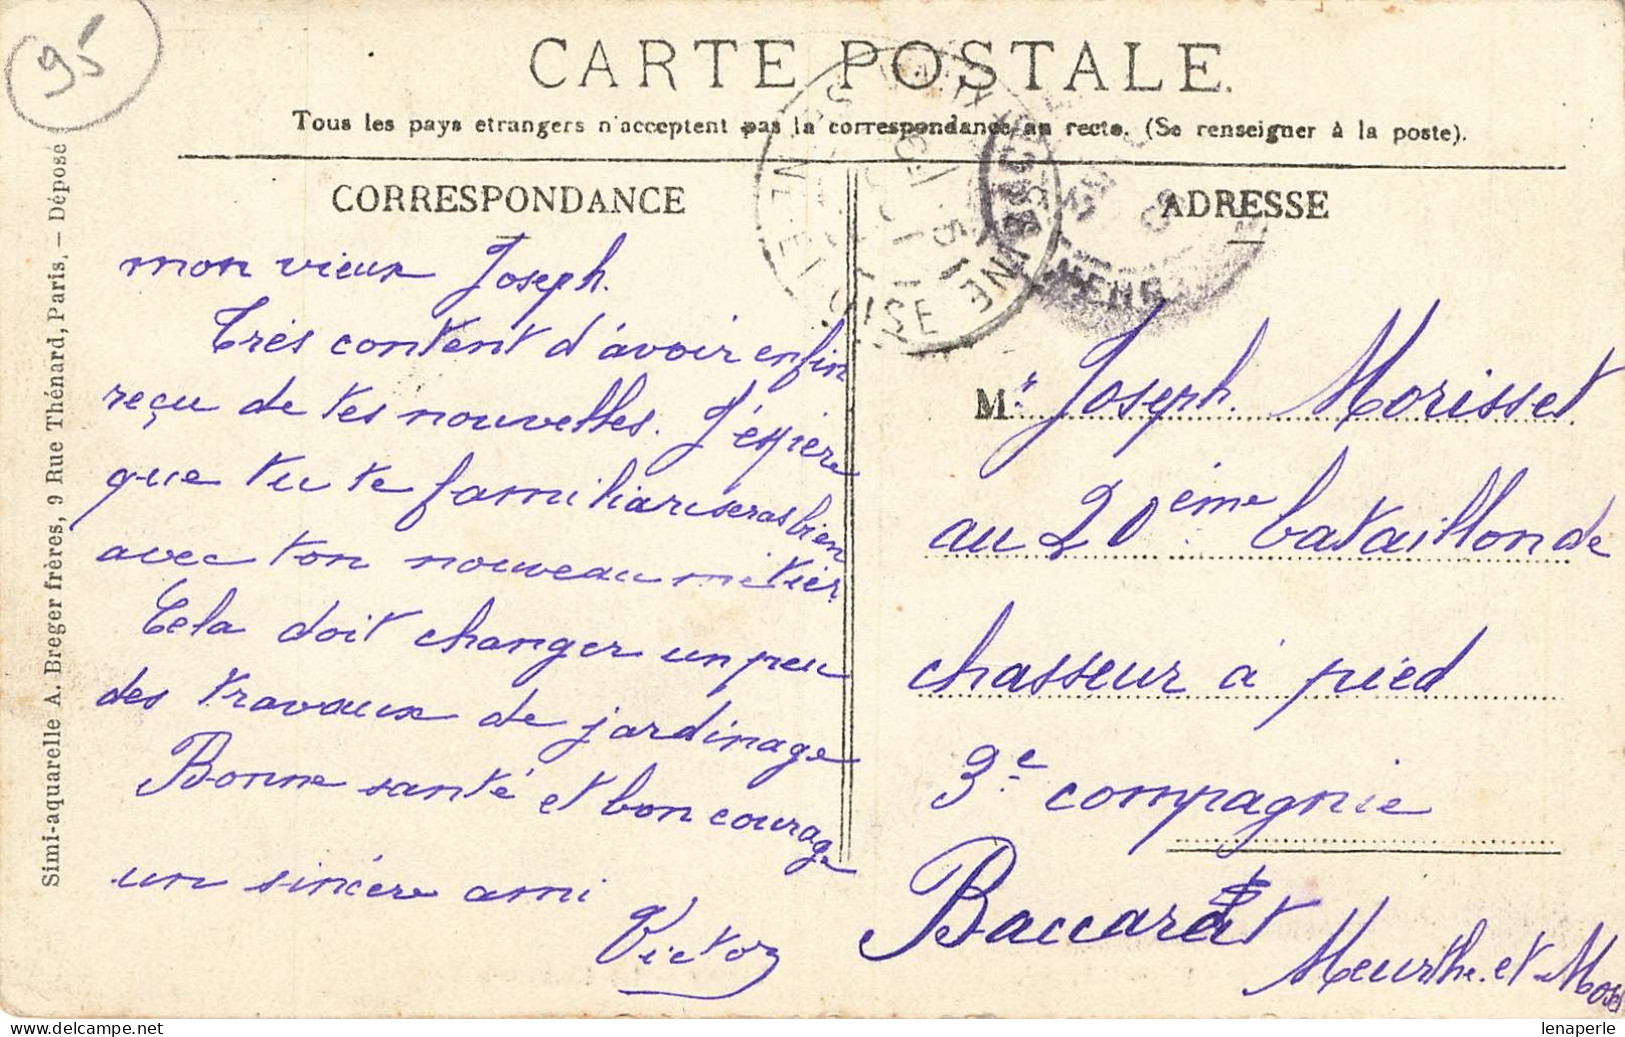 95
CARTE POSTALE.
Tous les pays etrangers n'acceptent pas la correspondance au recto. (Se renseigner à la poste).
CORRESPONDANCE
mon vieux Joseph.
Très content d'avoir enfin
reçu de tes nouvelles. J'éspère
que tu te familiariseras bien
avec ton nouveau métier.
Cela doit changer un peu
des travaux de jardinage
Bonne santé et bon courage
un sincère ami
Victor
ADRESSE
Mr. Joseph Morisset
au 20ème bataillon de
chasseur à pied
3e compagnie
Baccarat
Meurthe et Mos
Simi-aquarelle A. Breger frères, 9 Rue Thénard, Paris. — Déposé
OISE
lenaperle